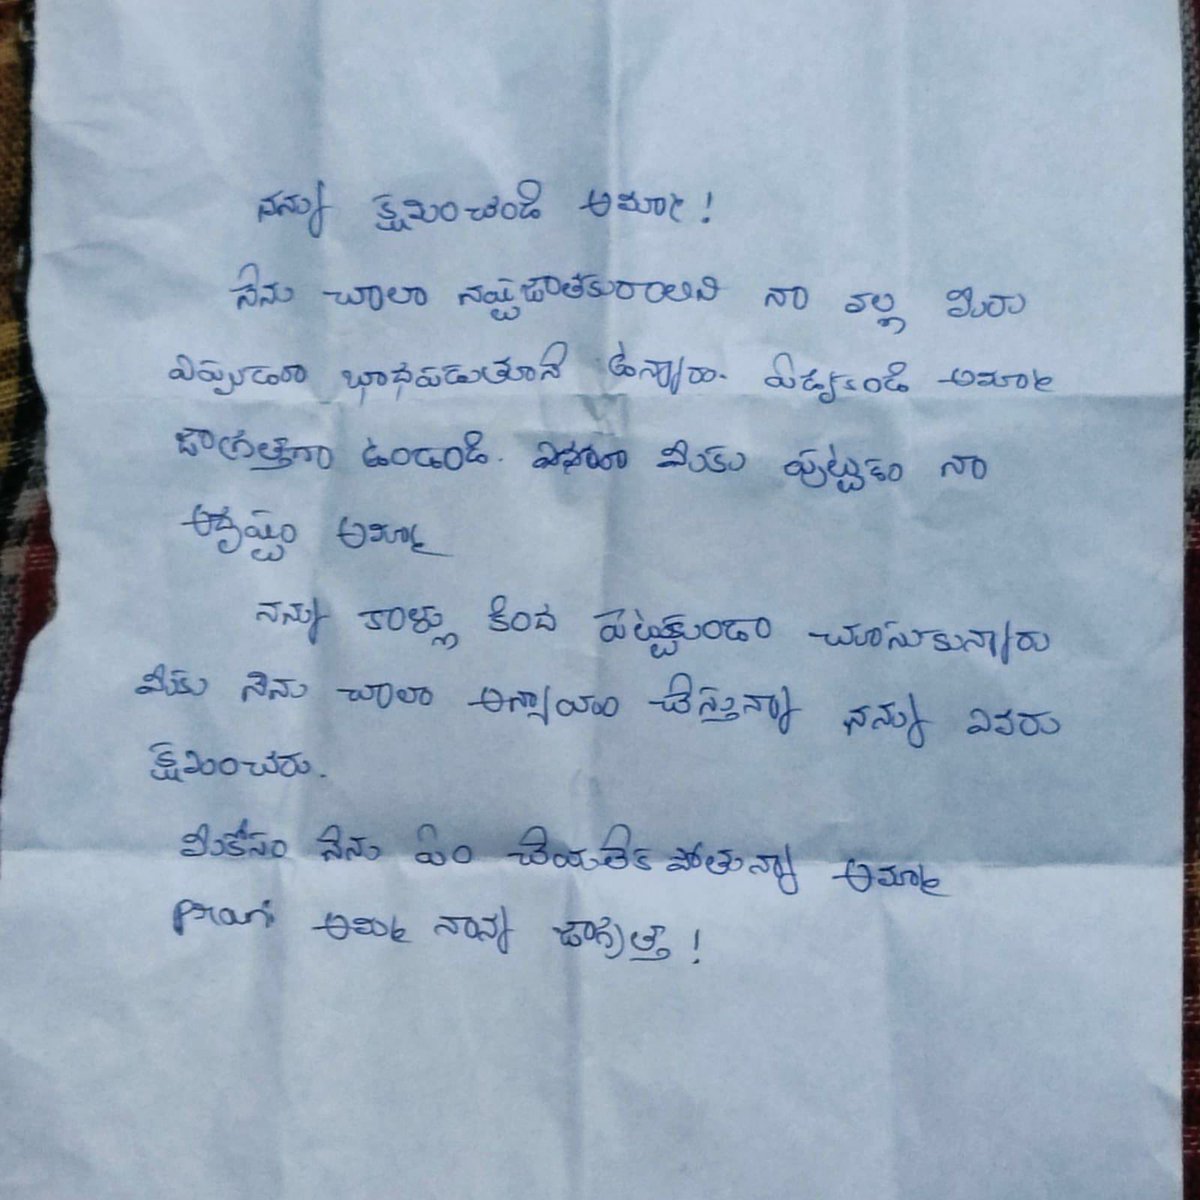 నన్ను క్షమించండి అమ్మా!
నేను చాలా నష్టజాతకురాలిని నా వల్ల మీరు
ఎప్పుడూ భాధపడుతూనే ఉన్నారు. ఏడ్వకండి అమ్మా
జాగ్రత్తగా ఉండండి. మీకు పుట్టడం నా
అదృష్టం అమ్మా
నన్ను కాళ్లు కింద పెట్టకుండా చూసుకున్నారు
మీకు నేను చాలా అన్యాయం చేస్తున్నా నన్ను ఎవరు
క్షమించరు.
మీకోసం నేను ఏం చేయలేక పోతున్నా అమ్మా
అమ్మ నాన్న జాగ్రత్త!